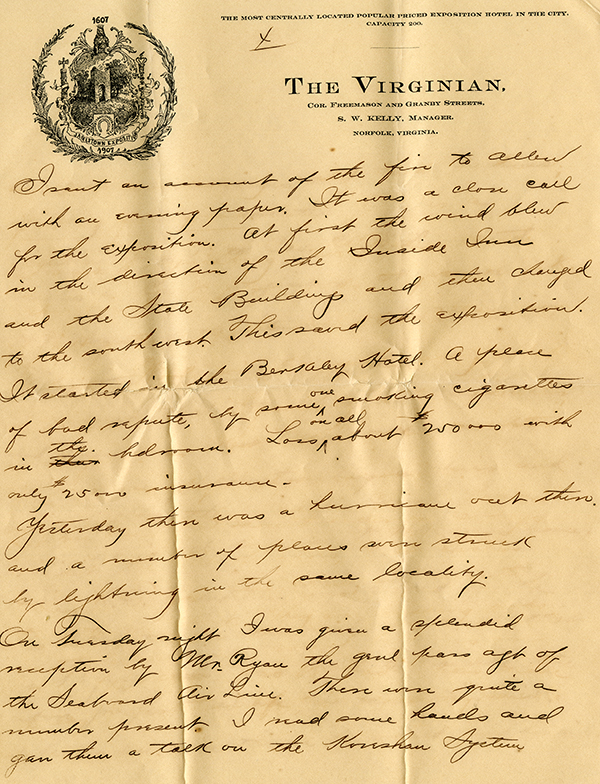 THE MOST CENTRALLY LOCATED POPULAR PRICED EXPOSITION HOTEL IN THE CITY.
CAPACITY 200.
1607
JAMESTOWN EXPOSITION
1907
THE VIRGINIAN,
COR. FREEMASON AND GRANBY STREETS,
S. W. KELLY, MANAGER.
NORFOLK, VIRGINIA.
I sent an account of the fire to Allen
with an evening paper. It was a close call
for the exposition. At first the wind blew
in the direction of the Inside Inn
and the State Buildings and then changed
to the southwest. This saved the exposition.
It started in the Berkley Hotel. A place
of bad repute, by some one smoking cigarettes
in the bedroom. Loss on all about $250000 with
only $25000 insurance -
Yesterday there was a hurricane over there.
and a number of places were struck
by lightning in the same locality.
On Tuesday night I was given a splendid
reception by Mr. Ryan the genl pass agt of
the Seaboard Air Line. There were quite a
number present I read some hands and
gave them a talk on the Koreshan System